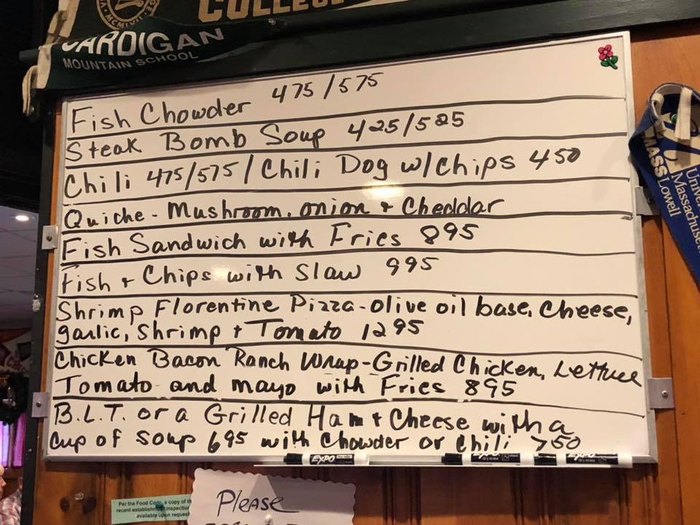 COLLEGE
CARDIGAN
MOUNTAIN SCHOOL
Fish Chowder 475/575
Steak Bomb Soup 425/525
Chili 475/575 / Chili Dog w/chips 450
Quiche - Mushroom, onion + Cheddar
Fish Sandwich with Fries 895
Fish + Chips with Slaw 995
Shrimp Florentine Pizza - olive oil base, cheese,
garlic, shrimp + Tomato 1295
Chicken Bacon Ranch Wrap - Grilled Chicken, Lettuce
Tomato and mayo with Fries 895
B.L.T. or a Grilled Ham + Cheese with a
Cup of soup 695 with Chowder or Chili 750
EXPO
EXPO
EXPO
Per the Food Code, a copy of
recent establishment inspection
available upon request
PLEASE
MASS
Lowell